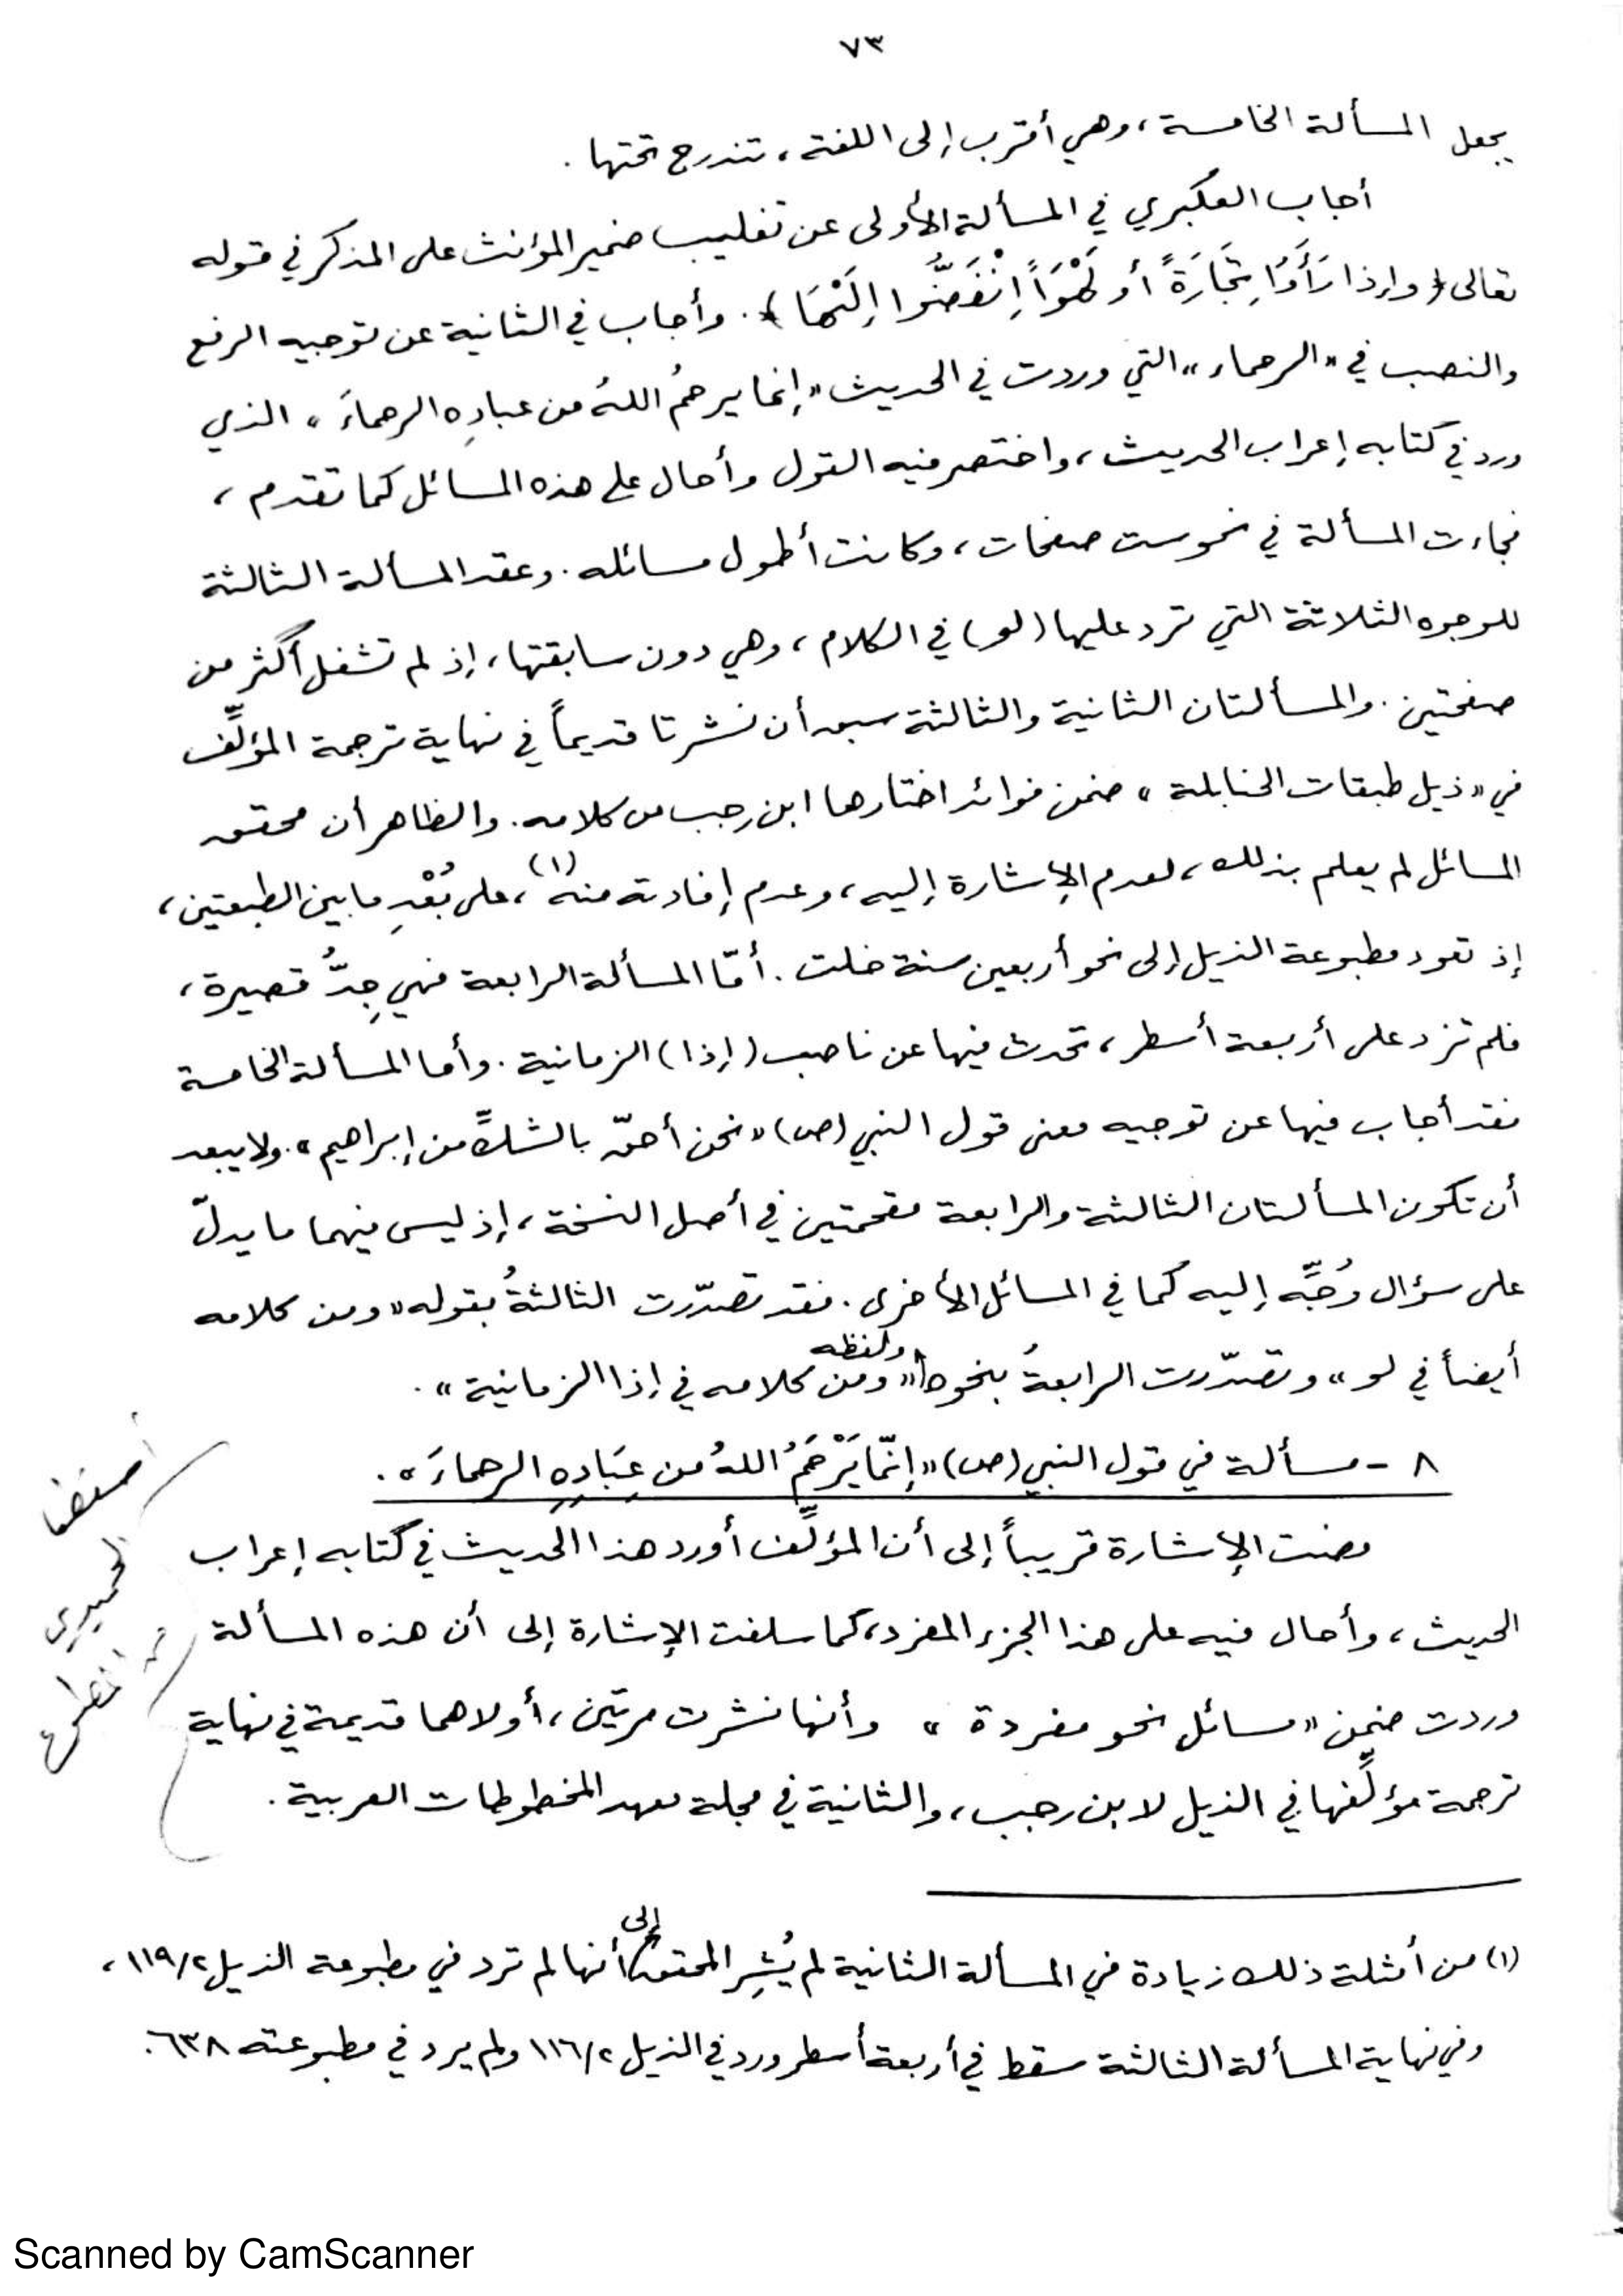 ٧٣
يجعل المسألة الخامسة، وهي أقرب إلى اللغة، تندرج تحتها.
أجاب العكبري في المسألة الأولى عن تغليب ضمير المؤنث على المذكر في قوله
تعالى ﴿وإذا رَأَوْا تِجَارَةً أو لَهْوَاً اِنْفَضُّوا إِلَيْهَا﴾. وأجاب في الثانية عن توجيه الرفع
والنصب في «الرحماء» التي وردت في الحديث «إنما يرحمُ اللهُ من عبادِه الرحماءَ» الذي
ورد في كتابه إعراب الحديث، واختصر فيه القول وأحال على هذه المسائل كما تقدم،
فجاءت المسألة في نحو ست صفحات، وكانت أطول مسائله. وعقد المسألة الثالثة
للوجوه الثلاثة التي ترد عليها (لو) في الكلام، وهي دون سابقتها، إذ لم تشغل أكثر من
صفحتين. والمسألتان الثانية والثالثة سبق أن نشرتا قديماً في نهاية ترجمة المؤلِّف
في «ذيل طبقات الحنابلة» ضمن فوائد اختارها ابن رجب من كلامه. والظاهر أن محقق
المسائل لم يعلم بذلك، لعدم الإشارة إليه، وعدم إفادته منه(١)، على بُعْدِ ما بين الطبعتين،
إذ تعود مطبوعة الذيل إلى نحو أربعين سنة خلت. أمّا المسألة الرابعة فهي جِدُّ قصيرة،
فلم تزد على أربعة أسطر، تحدث فيها عن ناصب (إذا) الزمانية. وأما المسألة الخامسة
فقد أجاب فيها عن توجيه معنى قول النبي (ص) «نحن أحقّ بالشكّ من إبراهيم». ولا يبعد
أن تكون المسألتان الثالثة والرابعة مقحمتين في أصل النسخة، إذ ليس فيهما ما يدلّ
على سؤال وُجِّه إليه كما في المسائل الأخرى. فقد تصدّرت الثالثةُ بقوله «ومن كلامه
أيضاً في لو» وتصدّرت الرابعةُ بنحوها ولفظه «ومن كلامه في إذا الزمانية».
٨ - مسألة في قول النبي (ص) «إنّما يَرْحَمُ اللهُ من عِبَادِهِ الرحماءَ».
مضت الإشارة قريباً إلى أن المؤلِّف أورد هذا الحديث في كتابه إعراب
الحديث، وأحال فيه على هذا الجزء المفرد، كما سلفت الإشارة إلى أن هذه المسألة
وردت ضمن «مسائل نحو مفردة» وأنها نشرت مرتين، أولاهما قديمة في نهاية
ترجمة مؤلِّفها في الذيل لابن رجب، والثانية في مجلة معهد المخطوطات العربية.
(١) من أمثلة ذلك زيادة في المسألة الثانية لم يُشِر المحقق إلى أنها لم ترد في مطبوعة الذيل ١١٩/٢،
وفي نهاية المسألة الثالثة سقط في أربعة أسطر ورد في الذيل ١١٦/٢ ولم يرد في مطبوعته ٦٣٨.
Scanned by CamScanner